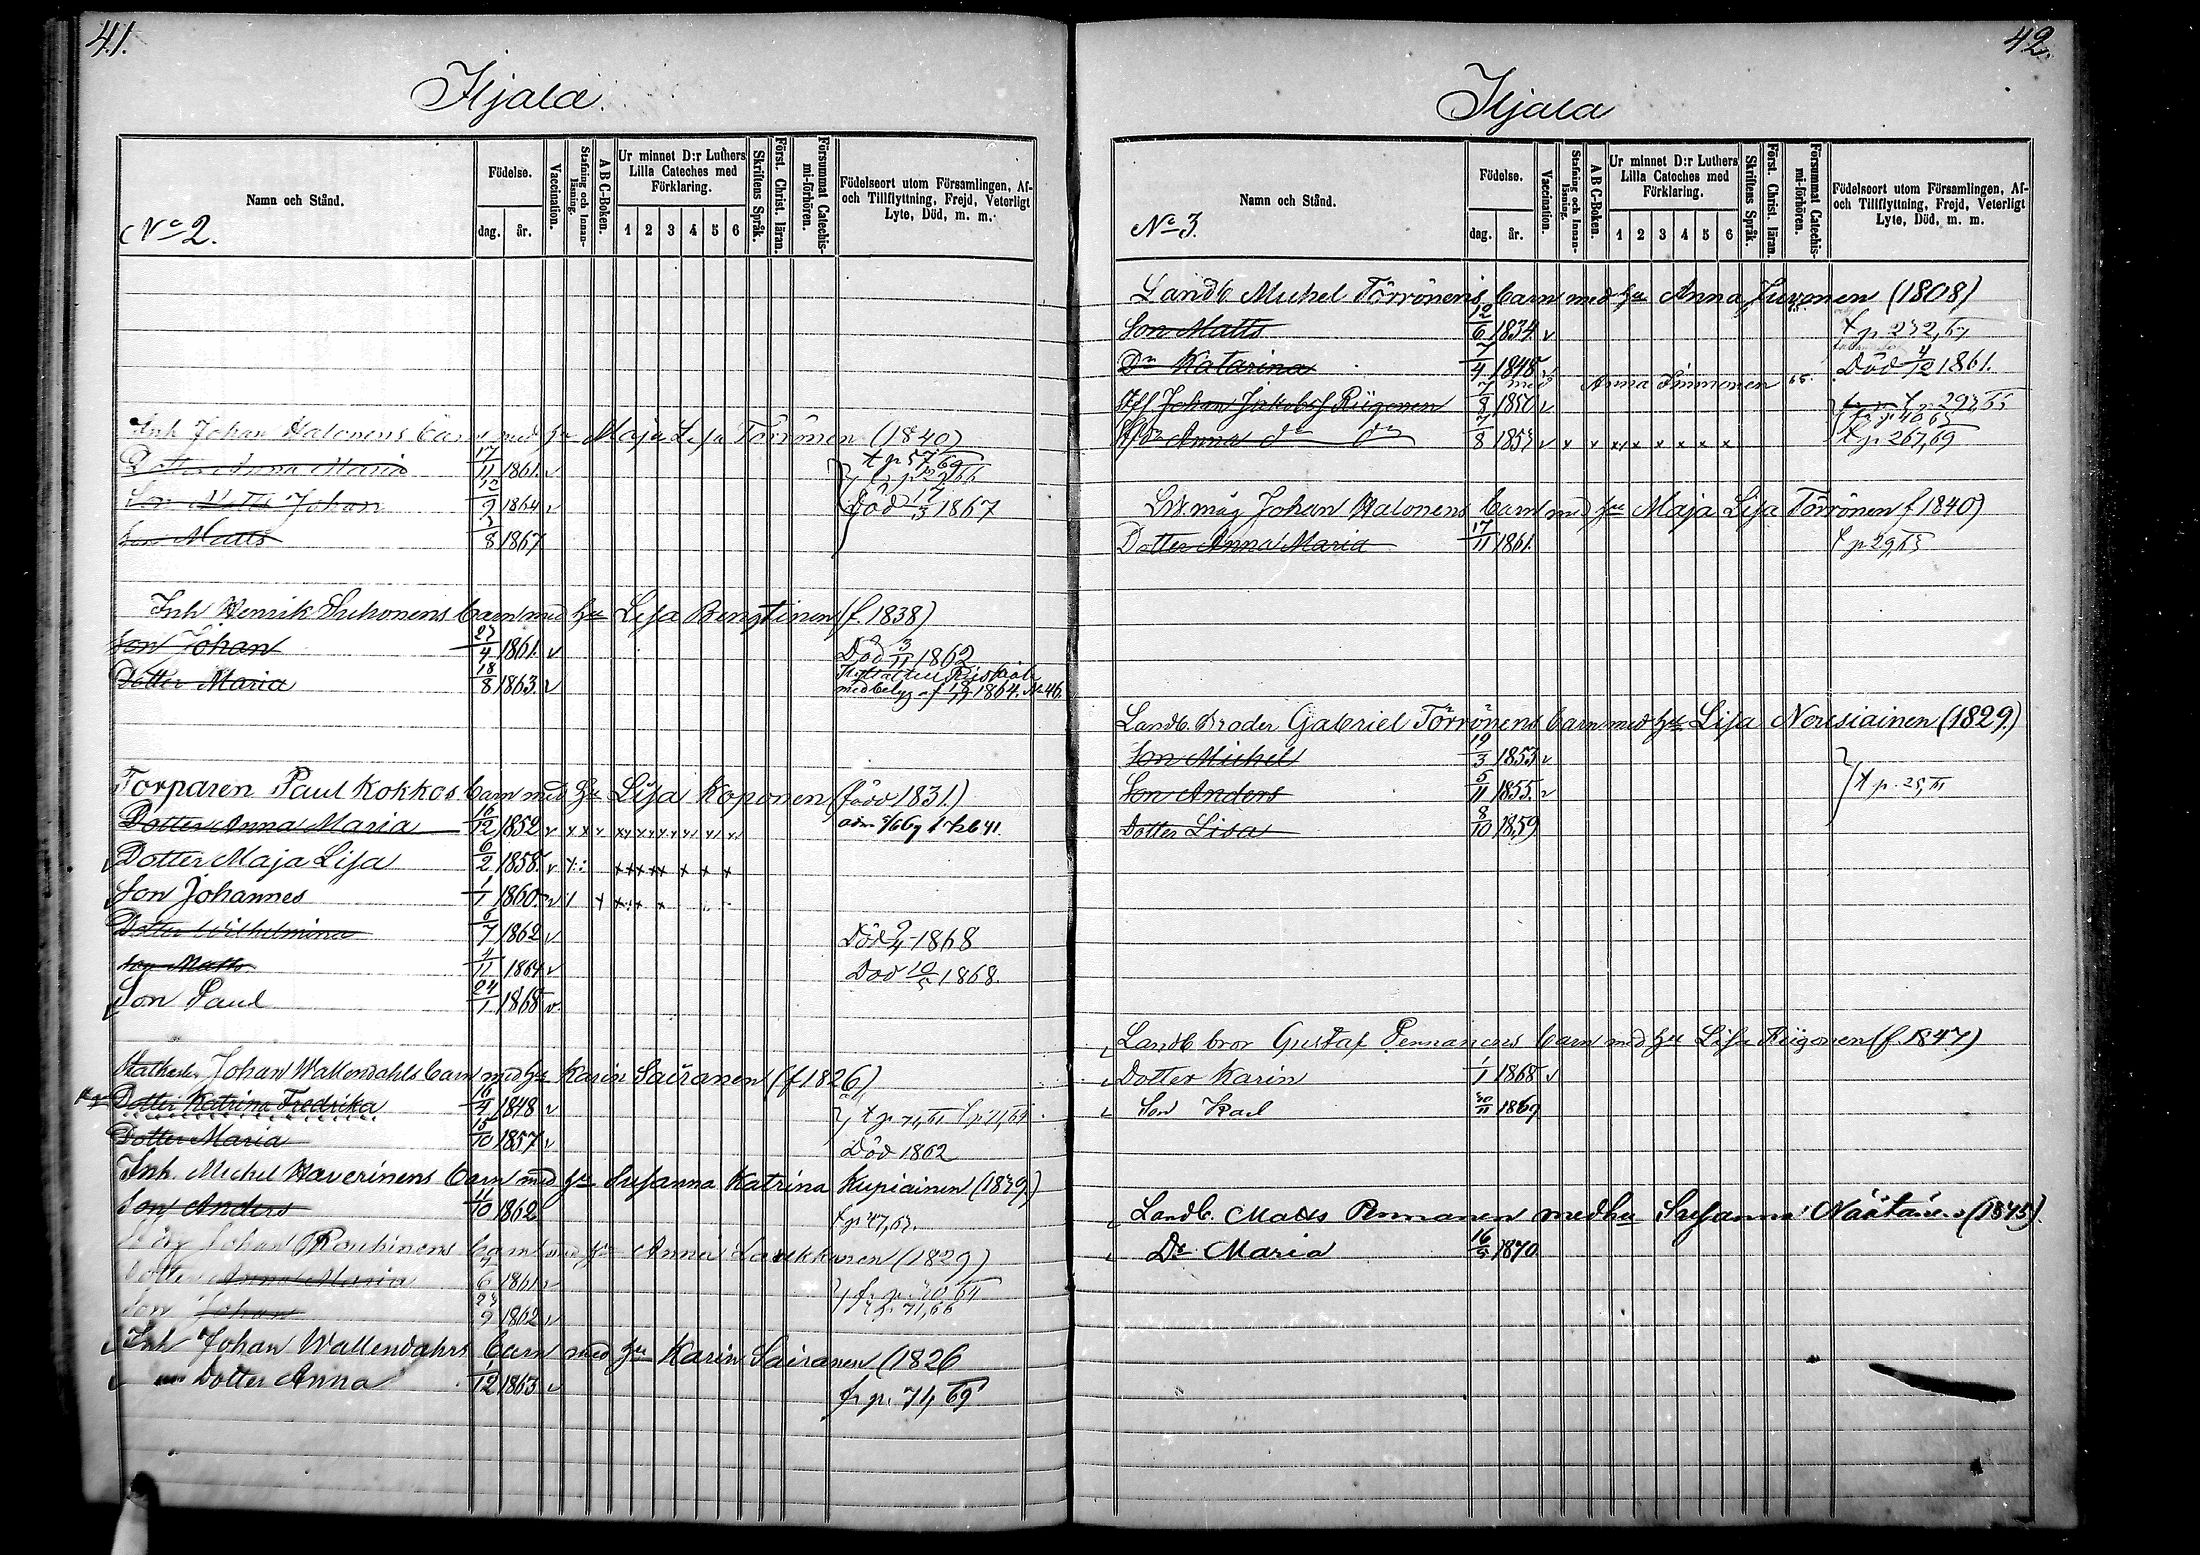 41.
Hjala.
Namn och Stånd.
No 2.
Födelse.
dag. år.
Vaccination.
Stafning och Innan-läsning.
A B C-Boken.
Ur minnet D:r Luthers Lilla Cateches med Förklaring.
1 2 3 4 5 6
Skriftens Språk.
Först. Christ. läran.
Försummat Catechis-mi-förhören.
Födelseort utom Församlingen, Af-
och Tillflyttning, Frejd, Veterligt
Lyte, Död, m. m.
Inh Johan Halonens barn med hu Maja Lisa Törrönen (1840)
Dotter Anna Maria 17/11 1861 v
Son Matts Johan 12/9 1864 v Död 17/3 1867
Son Matts 3/8 1867
Inh Henrik Suhonens barn med hu Lisa Bengtinen (f. 1838)
Son Johan 23/4 1861. v Död 3/11 1862
Dotter Maria 18/8 1863 v
Torparen Paul Kokkos barn med hu Lisa Koponen (född 1831.)
Dotter Anna Maria 16/12 1852 v
Dotter Maja Lisa 6/2 1858. v
Son Johannes 1/1 1860. v
Dotter Wilhelmina 6/7 1862 v Död 1868
Son Matts 4/11 1864 v Död 1868.
Son Paul 24/1 1868 v
Johan Wallendahls barn med hu Karin Sairanen (f 1826)
Dotter Katrina Fredrika 16/4 1848 v
Dotter Maria 15/10 1857 v Död 1862
Inh. Michel Haverinens barn med hu Susanna Katrina Kupiainen (1839.)
Son Anders 11/10 1862 f p 47,63.
Johan Routinens barn med hu Anna Laukkanen (1829)
Dotter Anna Maria 6 1861 v
Son Johan 23/9 1862 v
Inh Johan Wallendahrs barn med hu Karin Sairanen (1826
Dotter Anna 1/12 1863 v fr p. 71,69
42.
Hjala
Namn och Stånd.
No 3.
Födelse.
dag. år.
Vaccination.
Stafning och Innan-läsning.
A B C-Boken.
Ur minnet D:r Luthers Lilla Cateches med Förklaring.
1 2 3 4 5 6
Skriftens Språk.
Först. Christ. läran.
Försummat Catechis-mi-förhören.
Födelseort utom Församlingen, Af-
och Tillflyttning, Frejd, Veterligt
Lyte, Död, m. m.
Landb Michel Törrönens barn med hu Anna Juvonen (1808)
Son Matts 12/6 1834 v
Dr Katarina 7/4 1848 v Död 4/12 1861.
med Anna Simmonen 65.
Johan Jakobsf Riigonen 8 1850 v
Anna dr dr 7/8 1853 v x x x x x x x x t p 267,69
Johan Halonens barn med hu Maja Lisa Törrönen f 1840)
Dotter Anna Maria 17/11 1861. t p 29,63
Landb. Broder Gabriel Törrönens barn med hu Lisa Nousiainen (1829.)
Son Michel 19/3 1853 v
Son Anders 5/11 1855. v
Dotter Lisa 8/10 1859
Landb bror Gustaf Pennanens barn med hu Lisa Riigonen (f. 1847)
Dotter Karin 1/1 1868 v
Son Karl 30/11 1869
Landb. Matts Pennanen med hu Susanna Näätänen (1845).
Dr Maria 16/5 1870